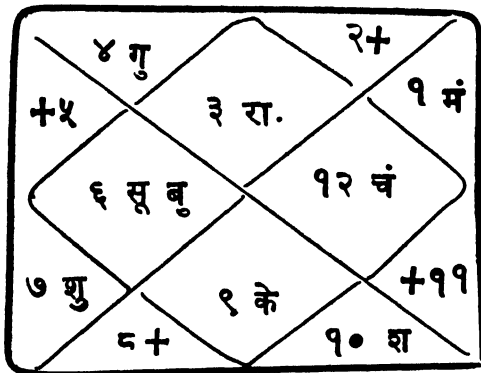 ४ गु
२+
+५
३ रा.
१ मं
६ सू बु
१२ चं
७ शु
९ के
+११
८+
१० श